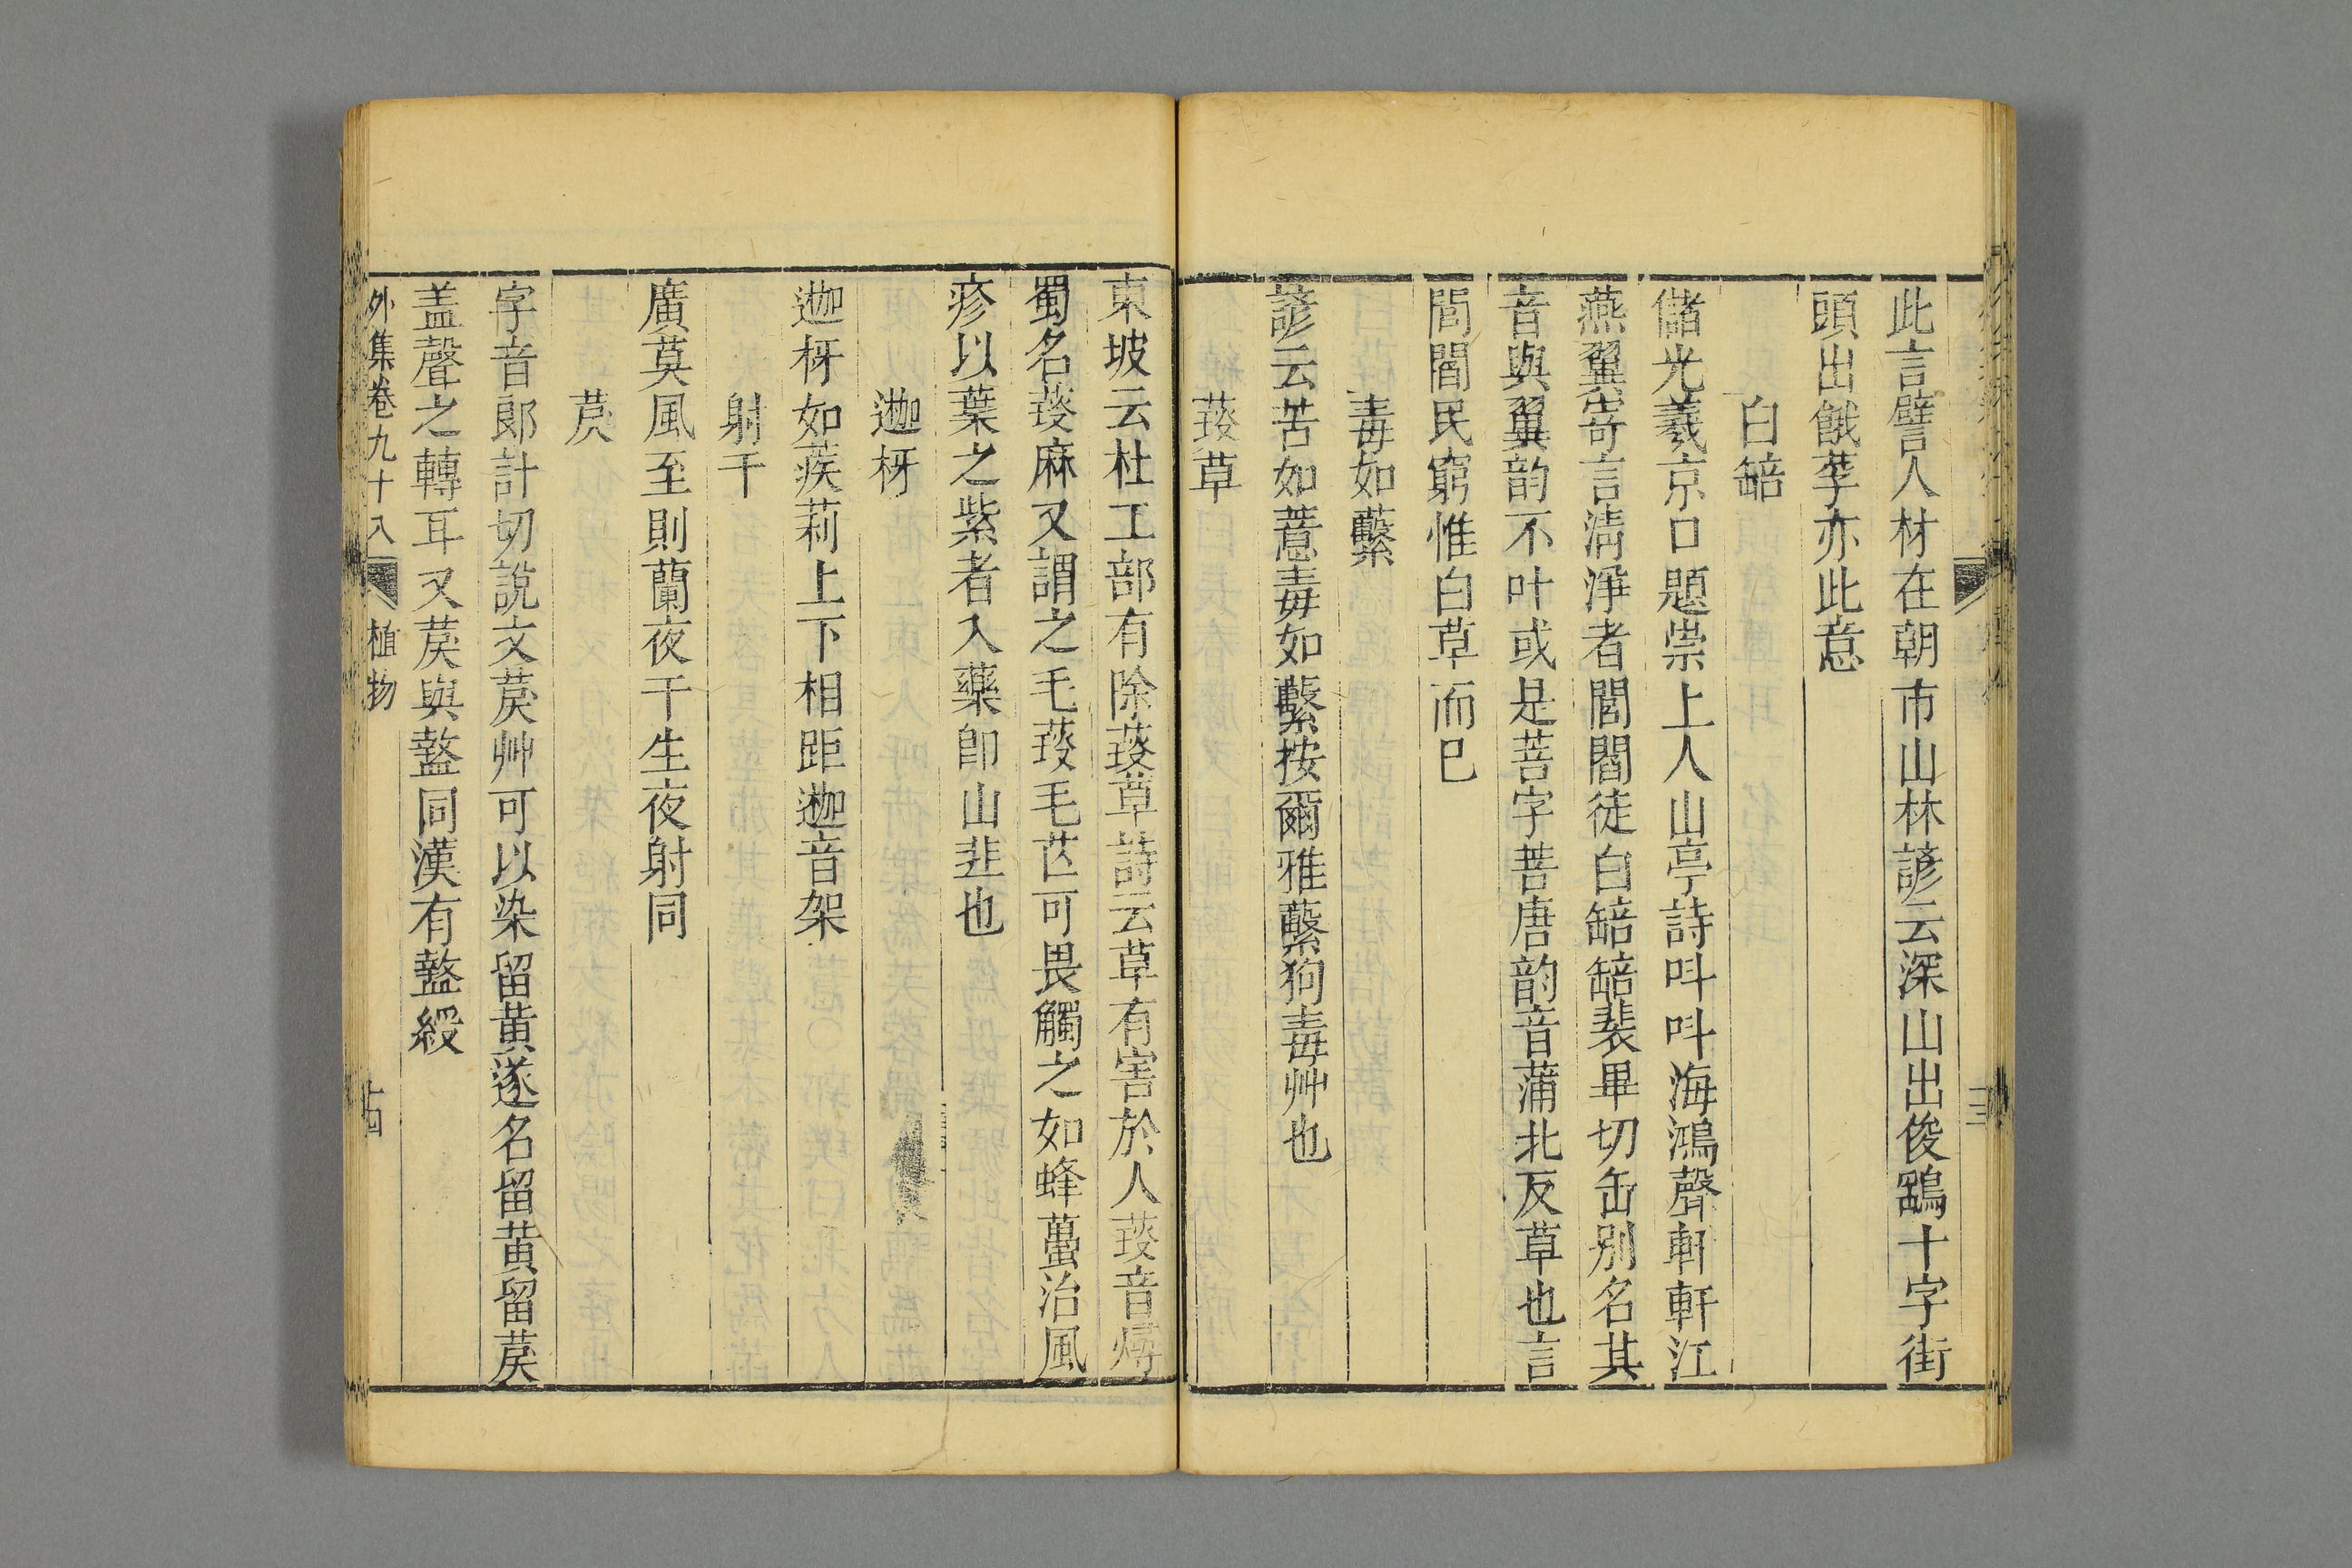 此言譬人材在朝市山林諺云深山出俊鷂十字街
頭出餓莩亦此意
白䪹
儲光羲京口題崇上人山亭詩叫叫海鴻聲軒軒江
燕翼寄言清淨者閭閻徒白䪹䪹裴畢切缶別名其
音與翼韵不叶或是菩字菩唐韵音蒲北反草也言
閭閻民窮惟白草而巳
毒如蘻
諺云苦如薏毒如蘻按爾雅蘻狗毒艸也
䓴草
東坡云杜工部有除䓴草詩云草有害於人䓴音燖
蜀名䓴麻又謂之毛䓴毛苉可畏觸之如蜂蠆治風
疹以葉之紫者入藥卽山韭也
迦枒
迦枒如蒺莉上下相距迦音架
射干
廣莫風至則蘭夜干生夜射同
茣
字音郎計切說文茣艸可以染留黄遂名留黄留茣
盖聲之轉耳又茣與盭同漢有盭綬
外集卷九十八
植物
十四